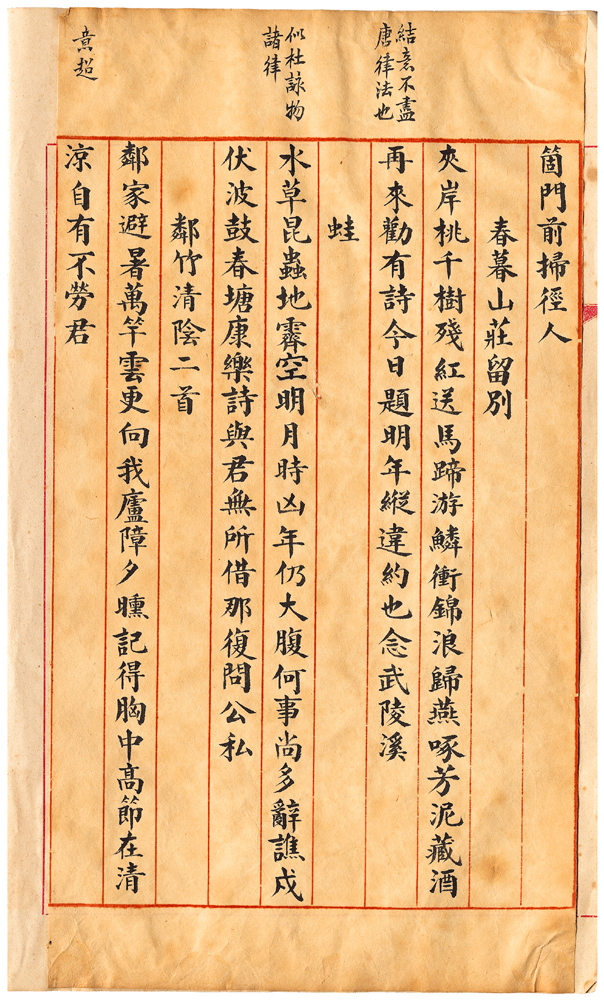 結意不盡
唐律法也
似杜詠物
諸律
意超
箇門前掃徑人
春暮山莊留別
夾岸桃千樹殘紅送馬蹄游鱗衝錦浪歸燕啄芳泥藏酒
再來勸有詩今日題明年縱違約也念武陵溪
蛙
水草昆蟲地霽空明月時凶年仍大腹何事尚多辭譙戍
伏波鼓春塘康樂詩與君無所借那復問公私
鄰竹清陰二首
鄰家避暑萬竿雲更向我廬障夕曛記得胸中高節在清
涼自有不勞君